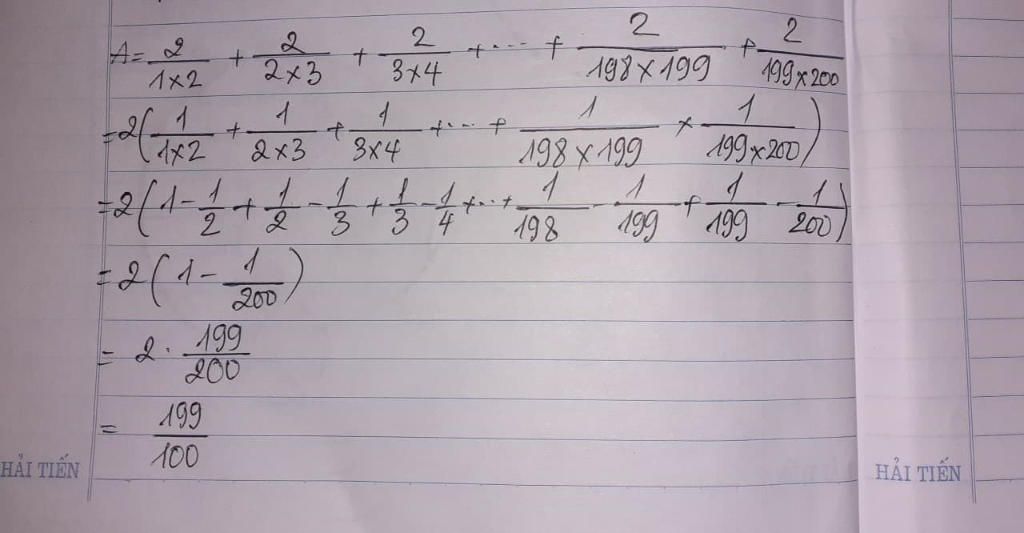 A = 2/1×2 + 2/2×3 + 2/3×4 + ... + 2/198×199 + 2/199×200
= 2(1/1×2 + 1/2×3 + 1/3×4 + ... + 1/198×199 × 1/199×200)
= 2(1 - 1/2 + 1/2 - 1/3 + 1/3 - 1/4 + ... + 1/198 - 1/199 + 1/199 - 1/200)
= 2(1 - 1/200)
= 2 . 199/200
= 199/100
HẢI TIẾN
HẢI TIẾN